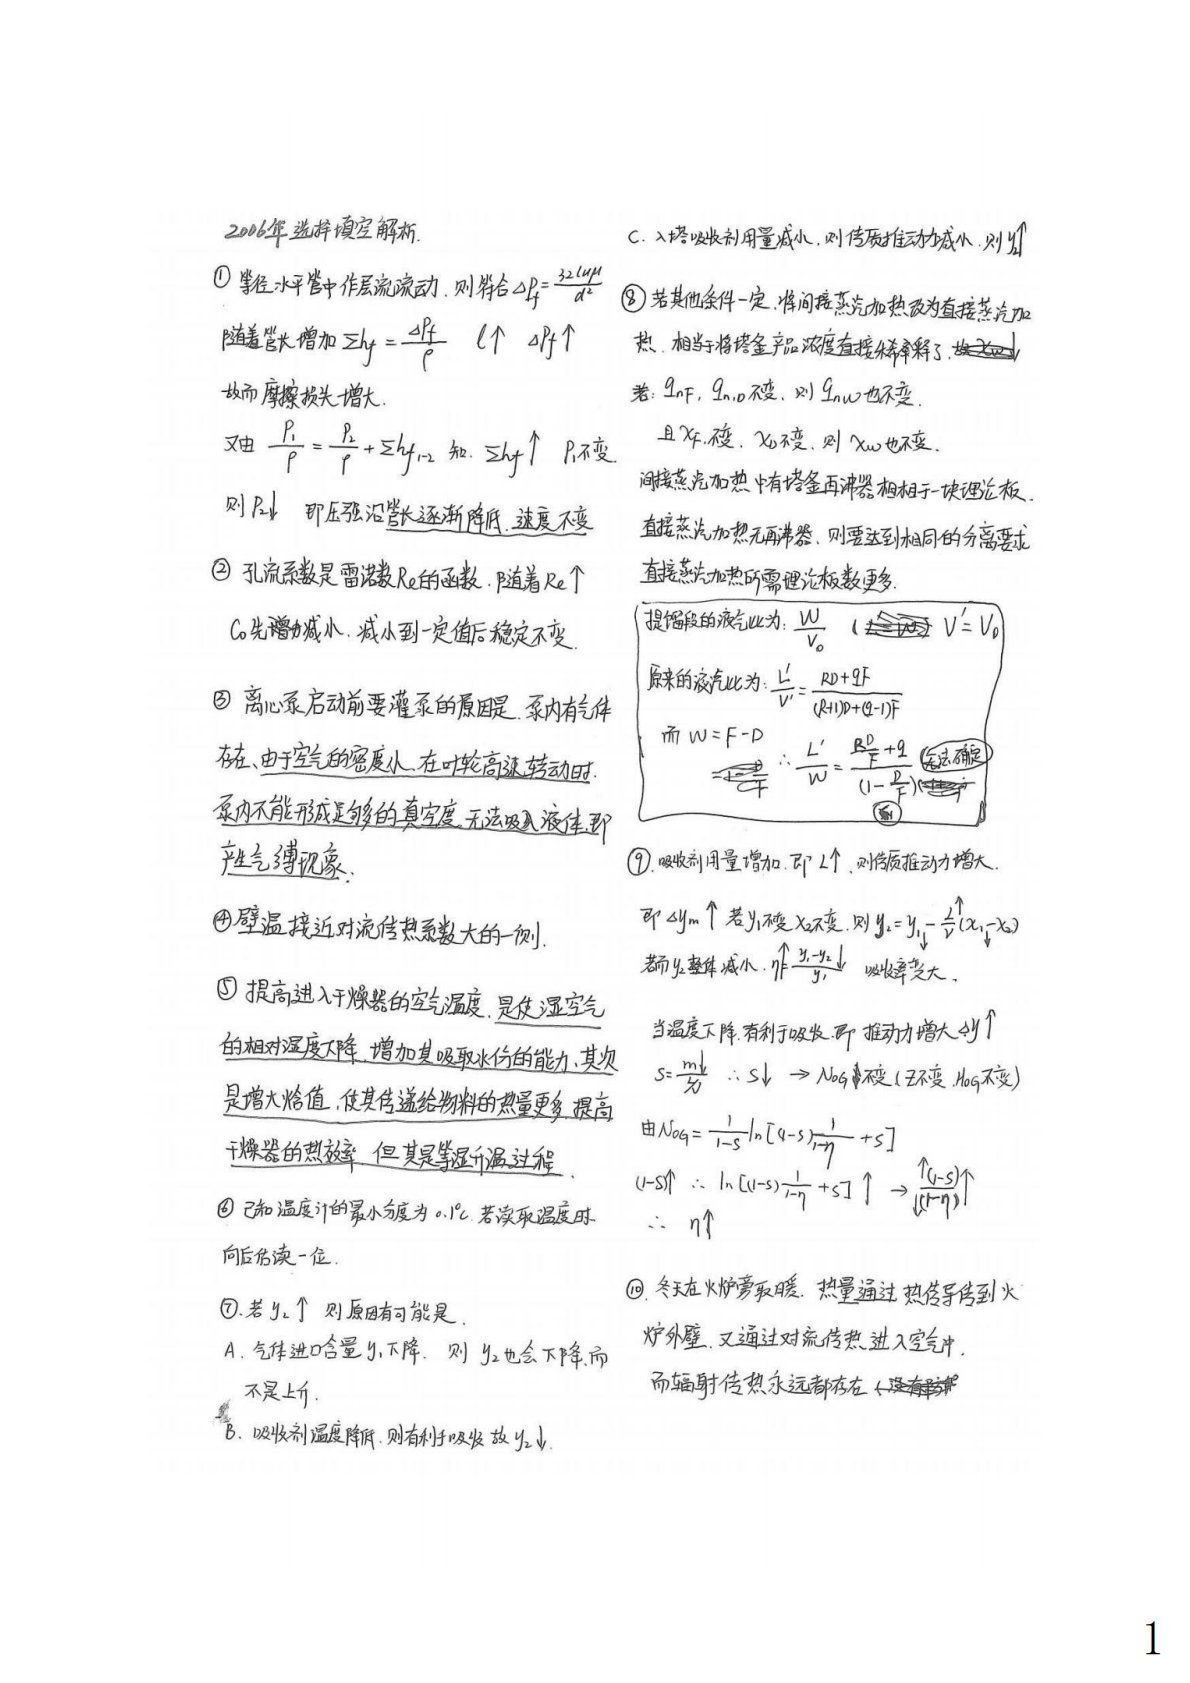 2006年选择填空解析.
① 等径水平管中作层流流动，则符合 ΔPf = 32luμ/d²
随着管长增加 Σhf = ΔPf/ρ l↑ ΔPf↑
故而摩擦损失增大.
又由 P₁/ρ = P₂/ρ + Σhf,1-2 知. Σhf↑ P₁不变
则P₂↓ 即压强沿管长逐渐降低，速度不变
② 孔流系数是雷诺数Re的函数，随着Re↑
C₀先增加减小，减小到一定值后稳定不变.
③ 离心泵启动前要灌泵的原因是，泵内有气体
存在、由于空气的密度小，在叶轮高速转动时.
泵内不能形成足够的真空度，无法吸入液体，即
产生气缚现象.
④ 壁温接近对流传热系数大的一侧.
⑤ 提高进入干燥器的空气温度，是使湿空气
的相对湿度下降，增加其吸取水份的能力，其次
是增大焓值，使其传递给物料的热量更多，提高
干燥器的热效率，但其是等湿升温过程.
⑥ 已知温度计的最小分度为0.1℃，若读取温度时
向后估读一位.
⑦.若y₂↑ 则原因有可能是.
A. 气体进口含量y₁下降. 则y₂也会下降，而
不是上升.
B. 吸收剂温度降低，则有利于吸收 故y₂↓.
C. 入塔吸收剂用量减小，则传质推动力减小，则y₂↑
⑧ 若其他条件一定，将间接蒸汽加热改为直接蒸汽加
热，相当于将塔釜产品浓度直接稀释了.
若：qnF，qn,D不变，则qnW也不变.
且XF不变、XD不变，则Xw也不变.
间接蒸汽加热中有塔釜再沸器相相于一块理论板.
直接蒸汽加热无再沸器，则要达到相同的分离要求
直接蒸汽加热所需理论板数更多.
提馏段的液气比为：W/V₀ V'=V₀
原来的液汽比为：L'/V' = (RD+qF)/((R+1)D+(q-1)F)
而 W=F-D
∴ L'/W = (R D/F + q)/(1 - D/F) 无法确定
⑨.吸收剂用量增加，即L↑，则传质推动力增大.
即Δym↑ 若y₁不变X₂不变，则 y₂ = y₁ - L/V(x₁-x₂)
若而y₂整体减小，η↑ = (y₁-y₂)/y₁ 吸收率变大.
当温度下降，有利于吸收，即推动力增大 Δy↑
S = m↓/(L/V) ∴ S↓ → NOG不变(Z不变，HOG不变)
由NOG = 1/(1-S) ln[(1-S) 1/(1-η) + S]
(1-S)↑ ∴ ln[(1-S) 1/(1-η) + S]↑ → ↑(1-S)/↓(1-η)↑
∴ η↑
⑩. 冬天在火炉旁取暖. 热量通过热传导传到火
炉外壁，又通过对流传热进入空气中.
而辐射传热永远都存在
1